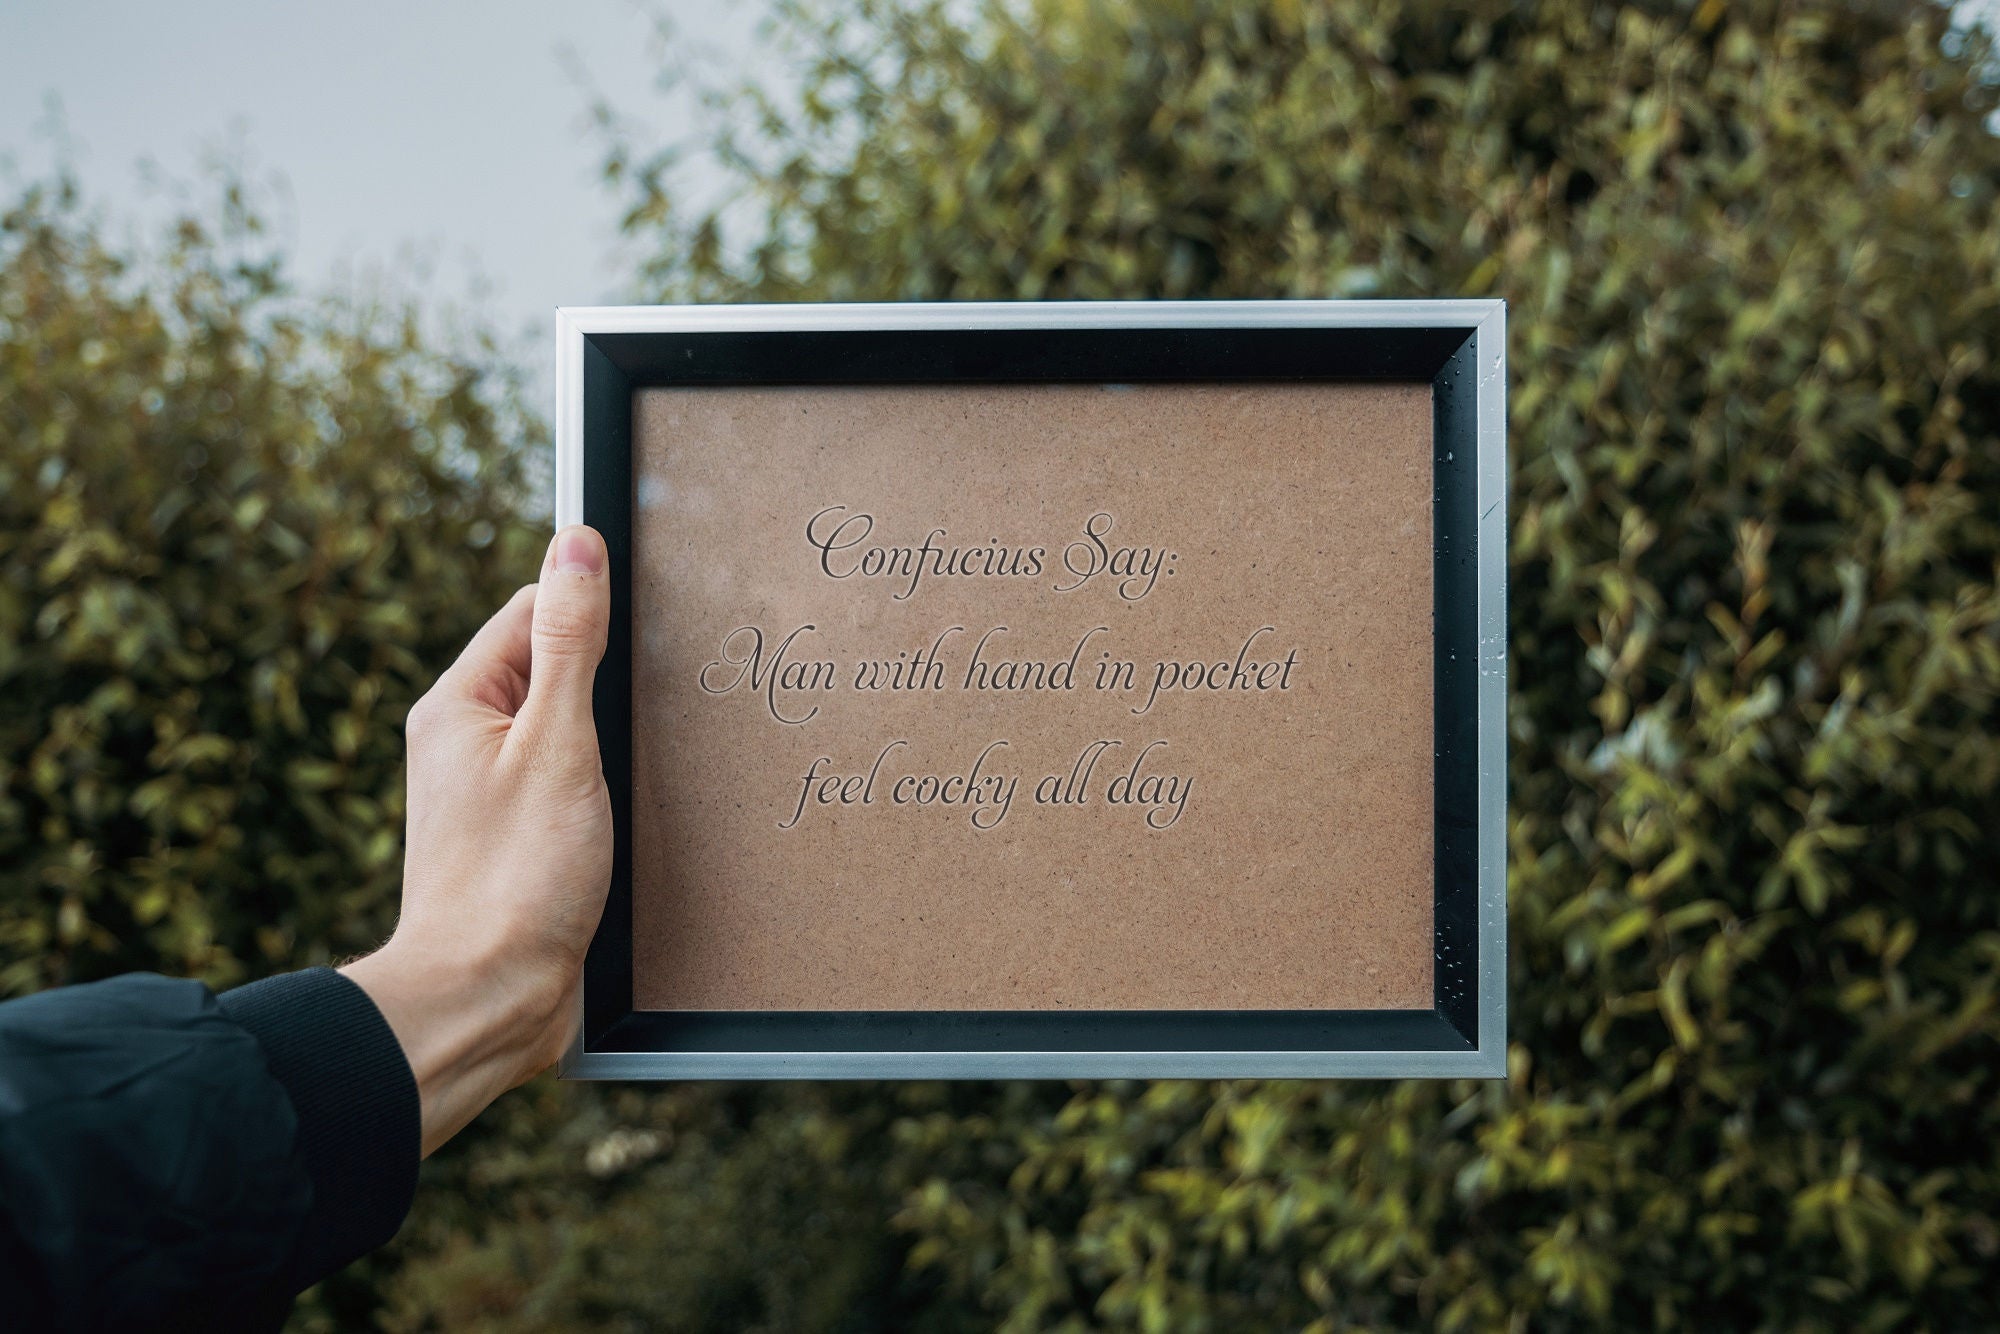 Confucius Say:
Man with hand in pocket
feel cocky all day